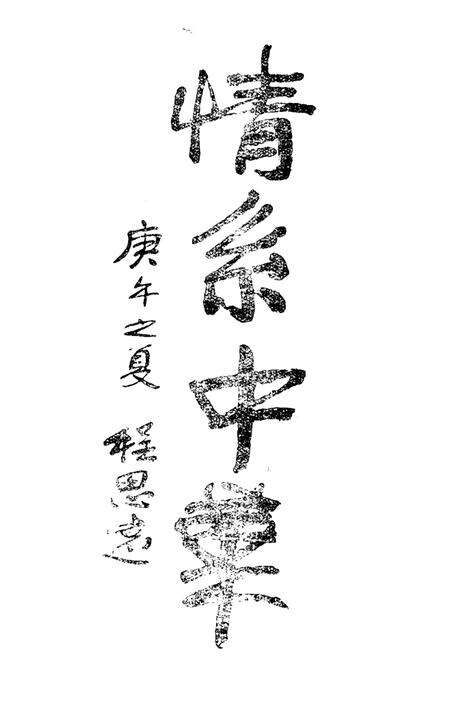 情系中華
庚午之夏 程思远